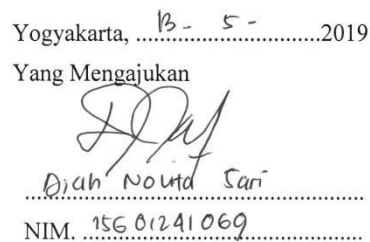 Yogyakarta, 13 - 5 - 2019
Yang Mengajukan
Diah Novita Sari
NIM. 15601241069